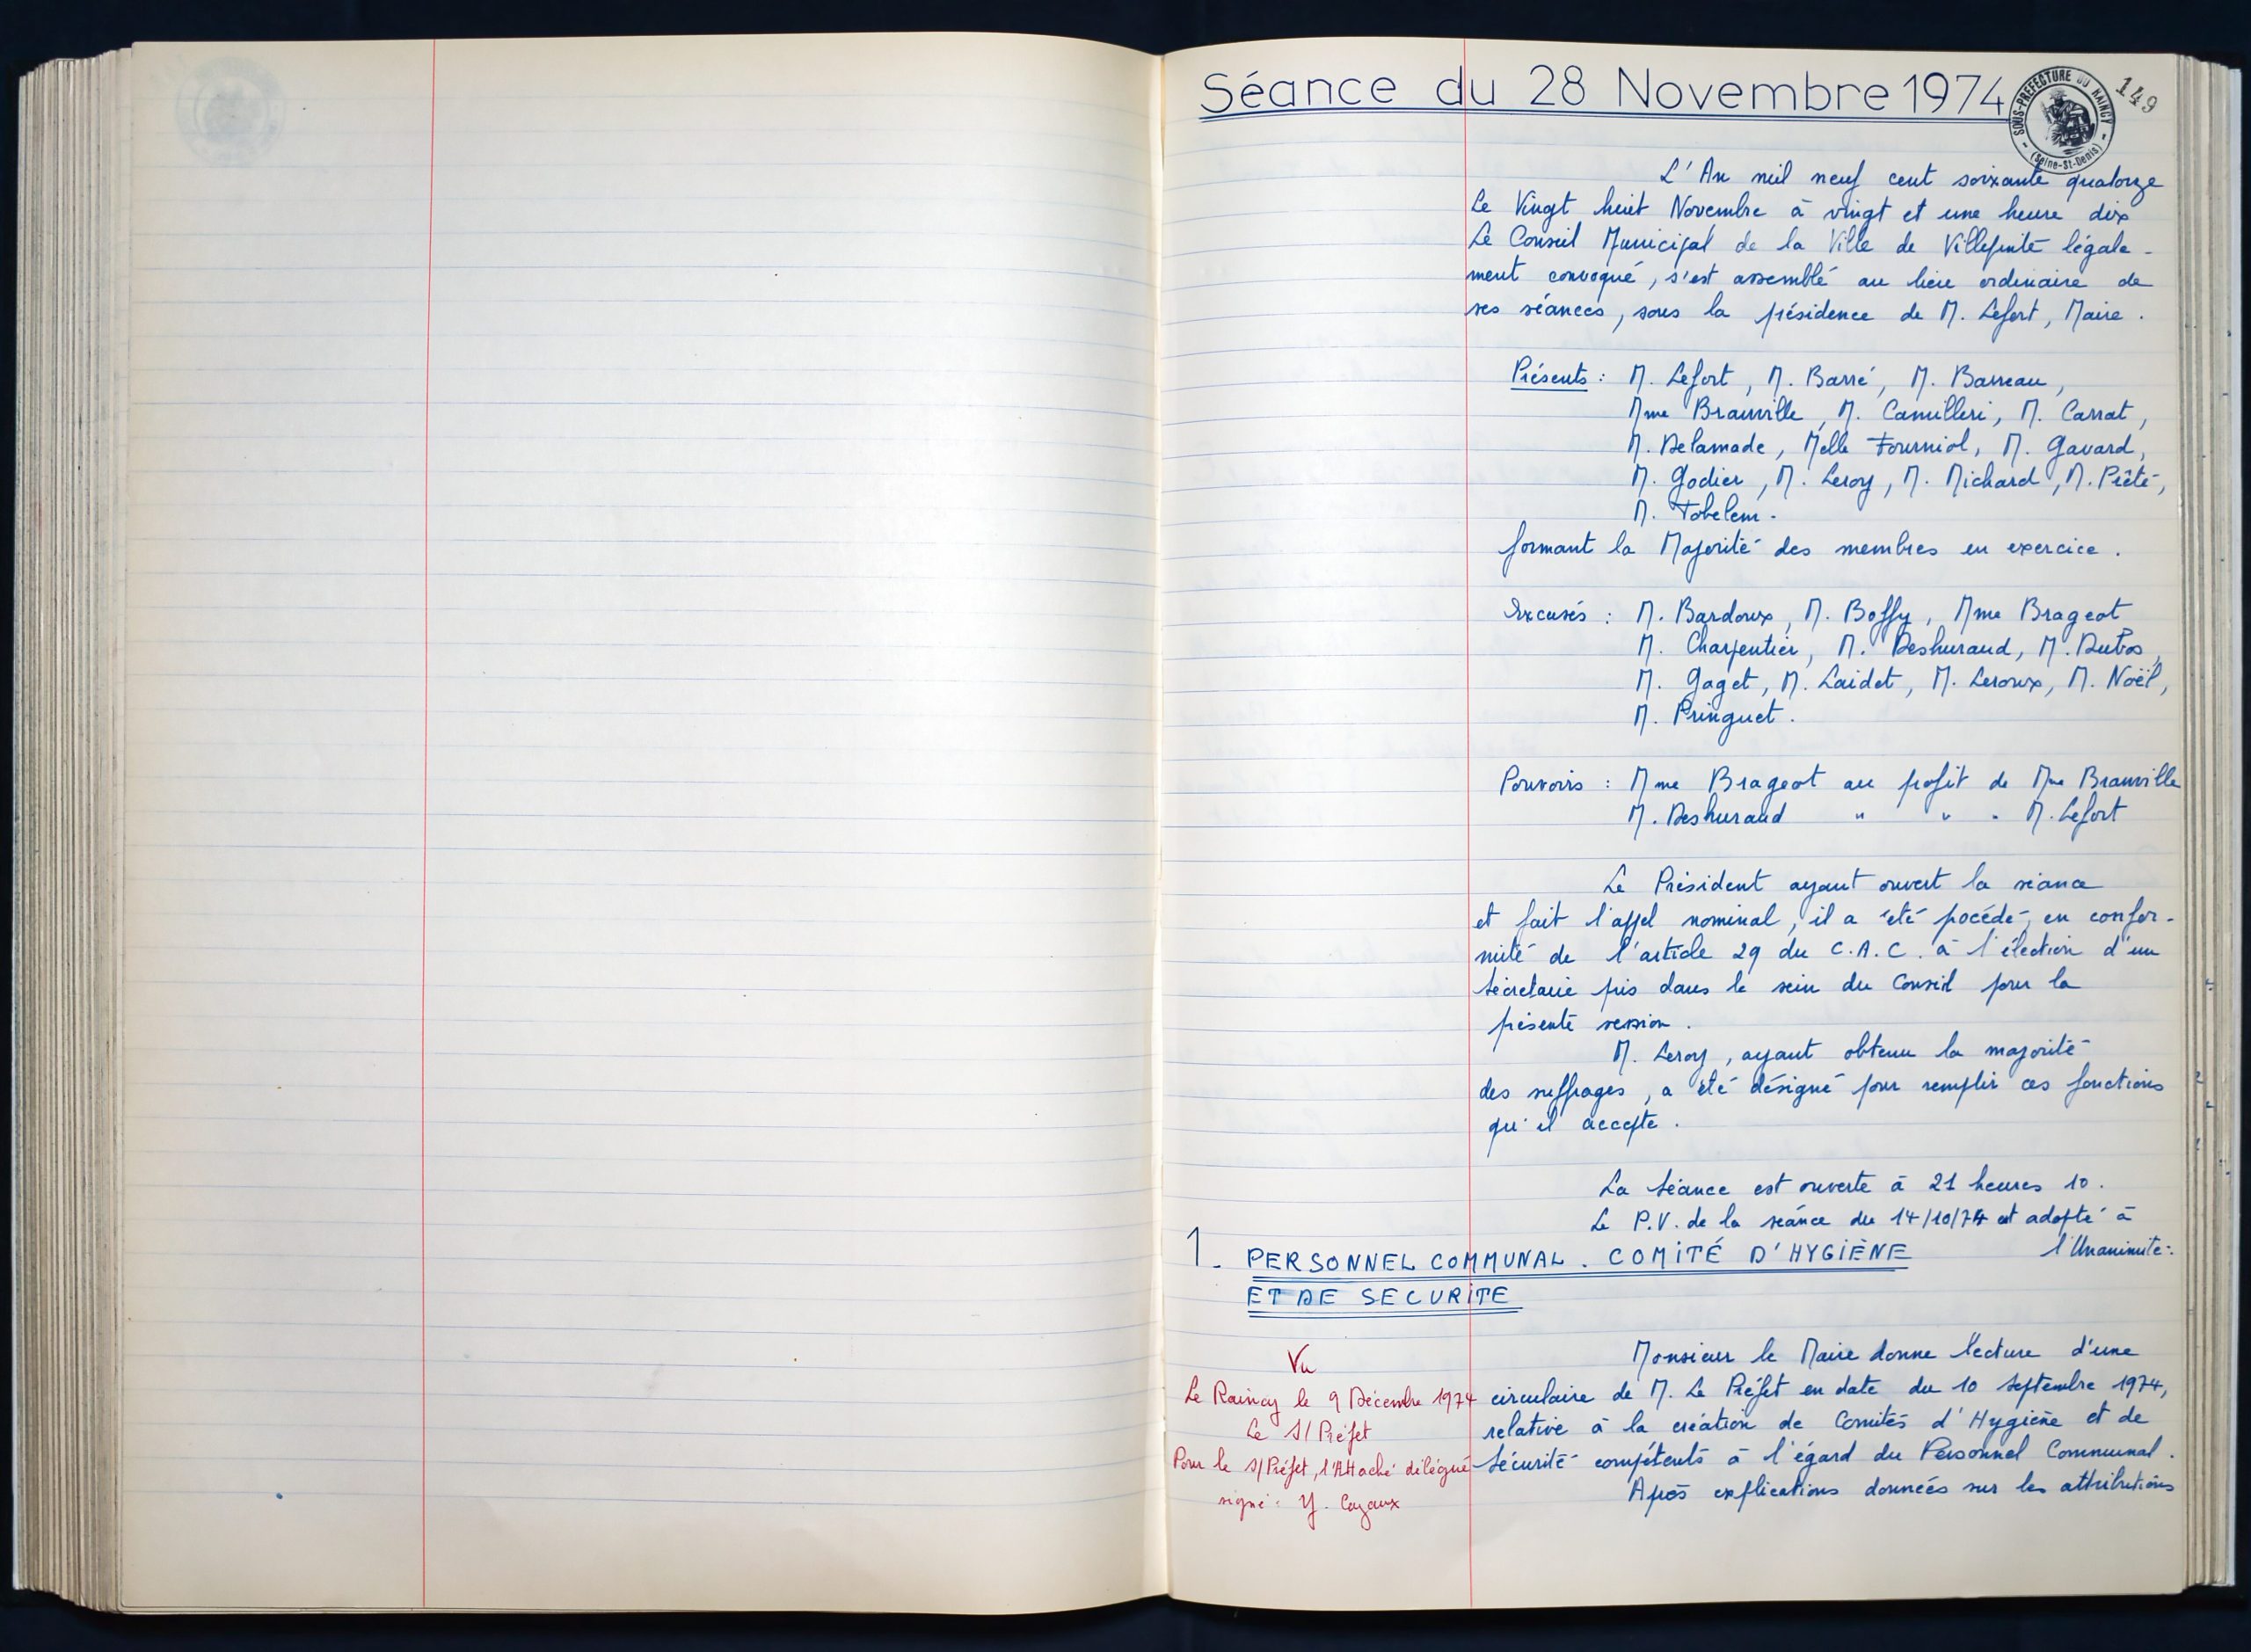 Séance du 28 Novembre 1974
149
SOUS-PRÉFECTURE DU RAINCY
(Seine-St-Denis)
L'An mil neuf cent soixante quatorze
Le Vingt huit Novembre à vingt et une heure dix
Le Conseil Municipal de la Ville de Villepinte légale-
ment convoqué, s'est assemblé au lieu ordinaire de
ses séances, sous la présidence de M. Lefort, Maire.
Présents : M. Lefort, M. Barré, M. Barreau,
Mme Brauville, M. Camilleri, M. Carrat,
M. Delamade, Melle Fourniol, M. Gavard,
M. Godier, M. Leroy, M. Michard, M. Piété,
M. Tobelem.
formant la Majorité des membres en exercice.
Excusés : M. Bardoux, M. Boffy, Mme Brageot
M. Charpentier, M. Deshuraud, M. Dubos,
M. Gaget, M. Laidet, M. Leroux, M. Noël,
M. Pringuet.
Pouvoirs : Mme Brageot au profit de Mme Brauville
M. Deshuraud " " " M. Lefort
Le Président ayant ouvert la séance
et fait l'appel nominal, il a été pocédé, en confor-
mité de l'article 29 du C.A.C. à l'élection d'un
Sécretaire pris dans le sein du Conseil pour la
présente session.
M. Leroy, ayant obtenu la majorité
des suffrages, a été désigné pour remplir ces fonctions
qu'il accepte.
La Séance est ouverte à 21 heures 10.
Le P.V. de la séance du 14/10/74 est adopté à
l'Unanimité.
1. PERSONNEL COMMUNAL. COMITÉ D'HYGIÈNE
ET DE SECURITE
Monsieur le Maire donne lecture d'une
circulaire de M. Le Préfet en date du 10 Septembre 1974,
relative à la création de Comités d'Hygiène et de
Sécurité compétents à l'égard du Personnel Communal.
Après explications données sur les attributions
Vu
Le Raincy le 9 Décembre 1974
Le S/Préfet
Pour le S/Préfet, l'Attaché délégué
signé : Y. Cazaux